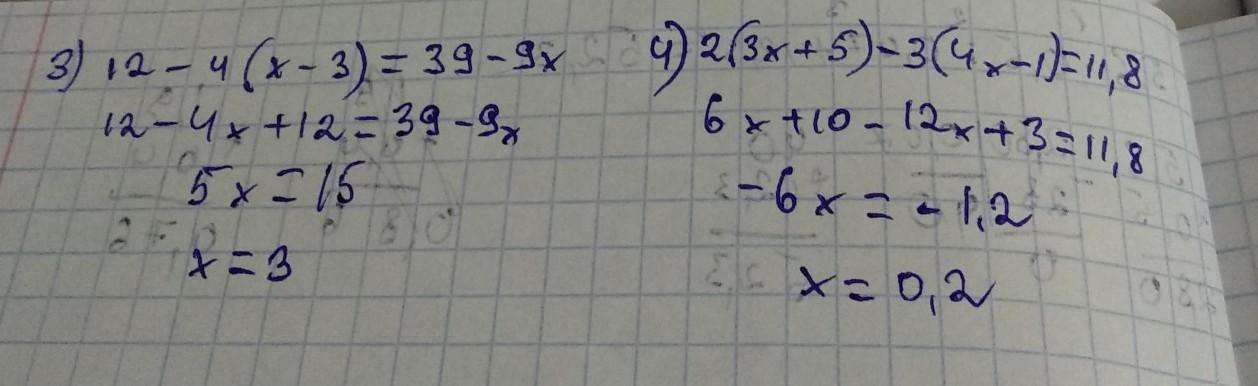 3) 12 - 4(x - 3) = 39 - 9x
12 - 4x + 12 = 39 - 9x
5x = 15
x = 3
4) 2(3x + 5) - 3(4x - 1) = 11,8
6x + 10 - 12x + 3 = 11,8
-6x = -1,2
x = 0,2